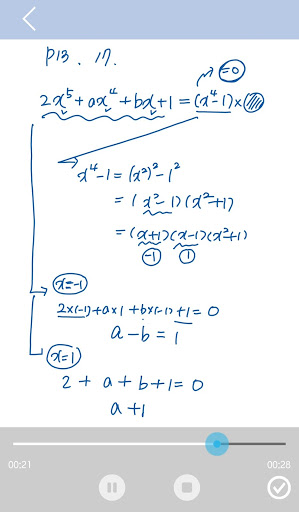 P13. 17.
=0
2x⁵+ax⁴+bx+1=(x⁴-1)×
x⁴-1=(x²)²-1²
=(x²-1)(x²+1)
=(x+1)(x-1)(x²+1)
-1 1
x=-1
2×(-1)+a×1+b×(-1)+1=0
a-b=1
x=1
2+a+b+1=0
a+1
00:21 00:28